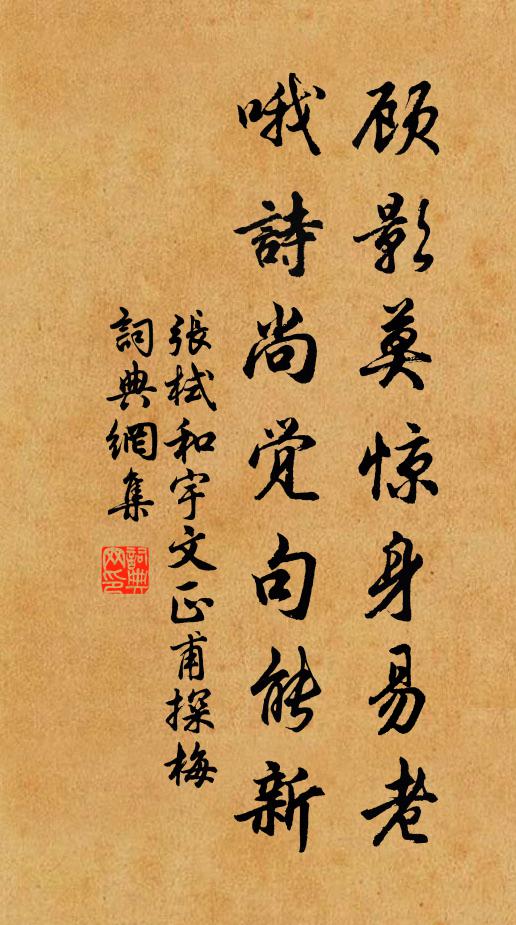 顾影莫惊身易老
哦詩尚觉句能新
張栻和宇文正甫探梅
詞典網集
詞典網印